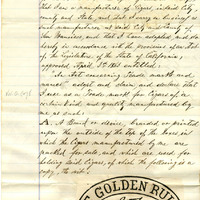 that I am a manufacturer of Cigars, in said City,
County and State, and that I carry on business as
such manufacturer, at said City and County of
San Francisco, and that I have adopted, and do
hereby in accordance with the provisions of an Act
of the Legislature of the State of California,
approved April 3d 1863 entitled
An Act concerning Trade marks and
names, adopt and claim, and declare that
I use as a Trade mark for Cigars of a
certain kind and quality manufactured by
me as such:
A Band or device, branded or printed
upon the outside of the top of the boxes in
which the Cigars manufactured by me are
packed for sale, and which are used for
holding said Cigars, of which the following is a
copy, to wit:
GOLDEN RU